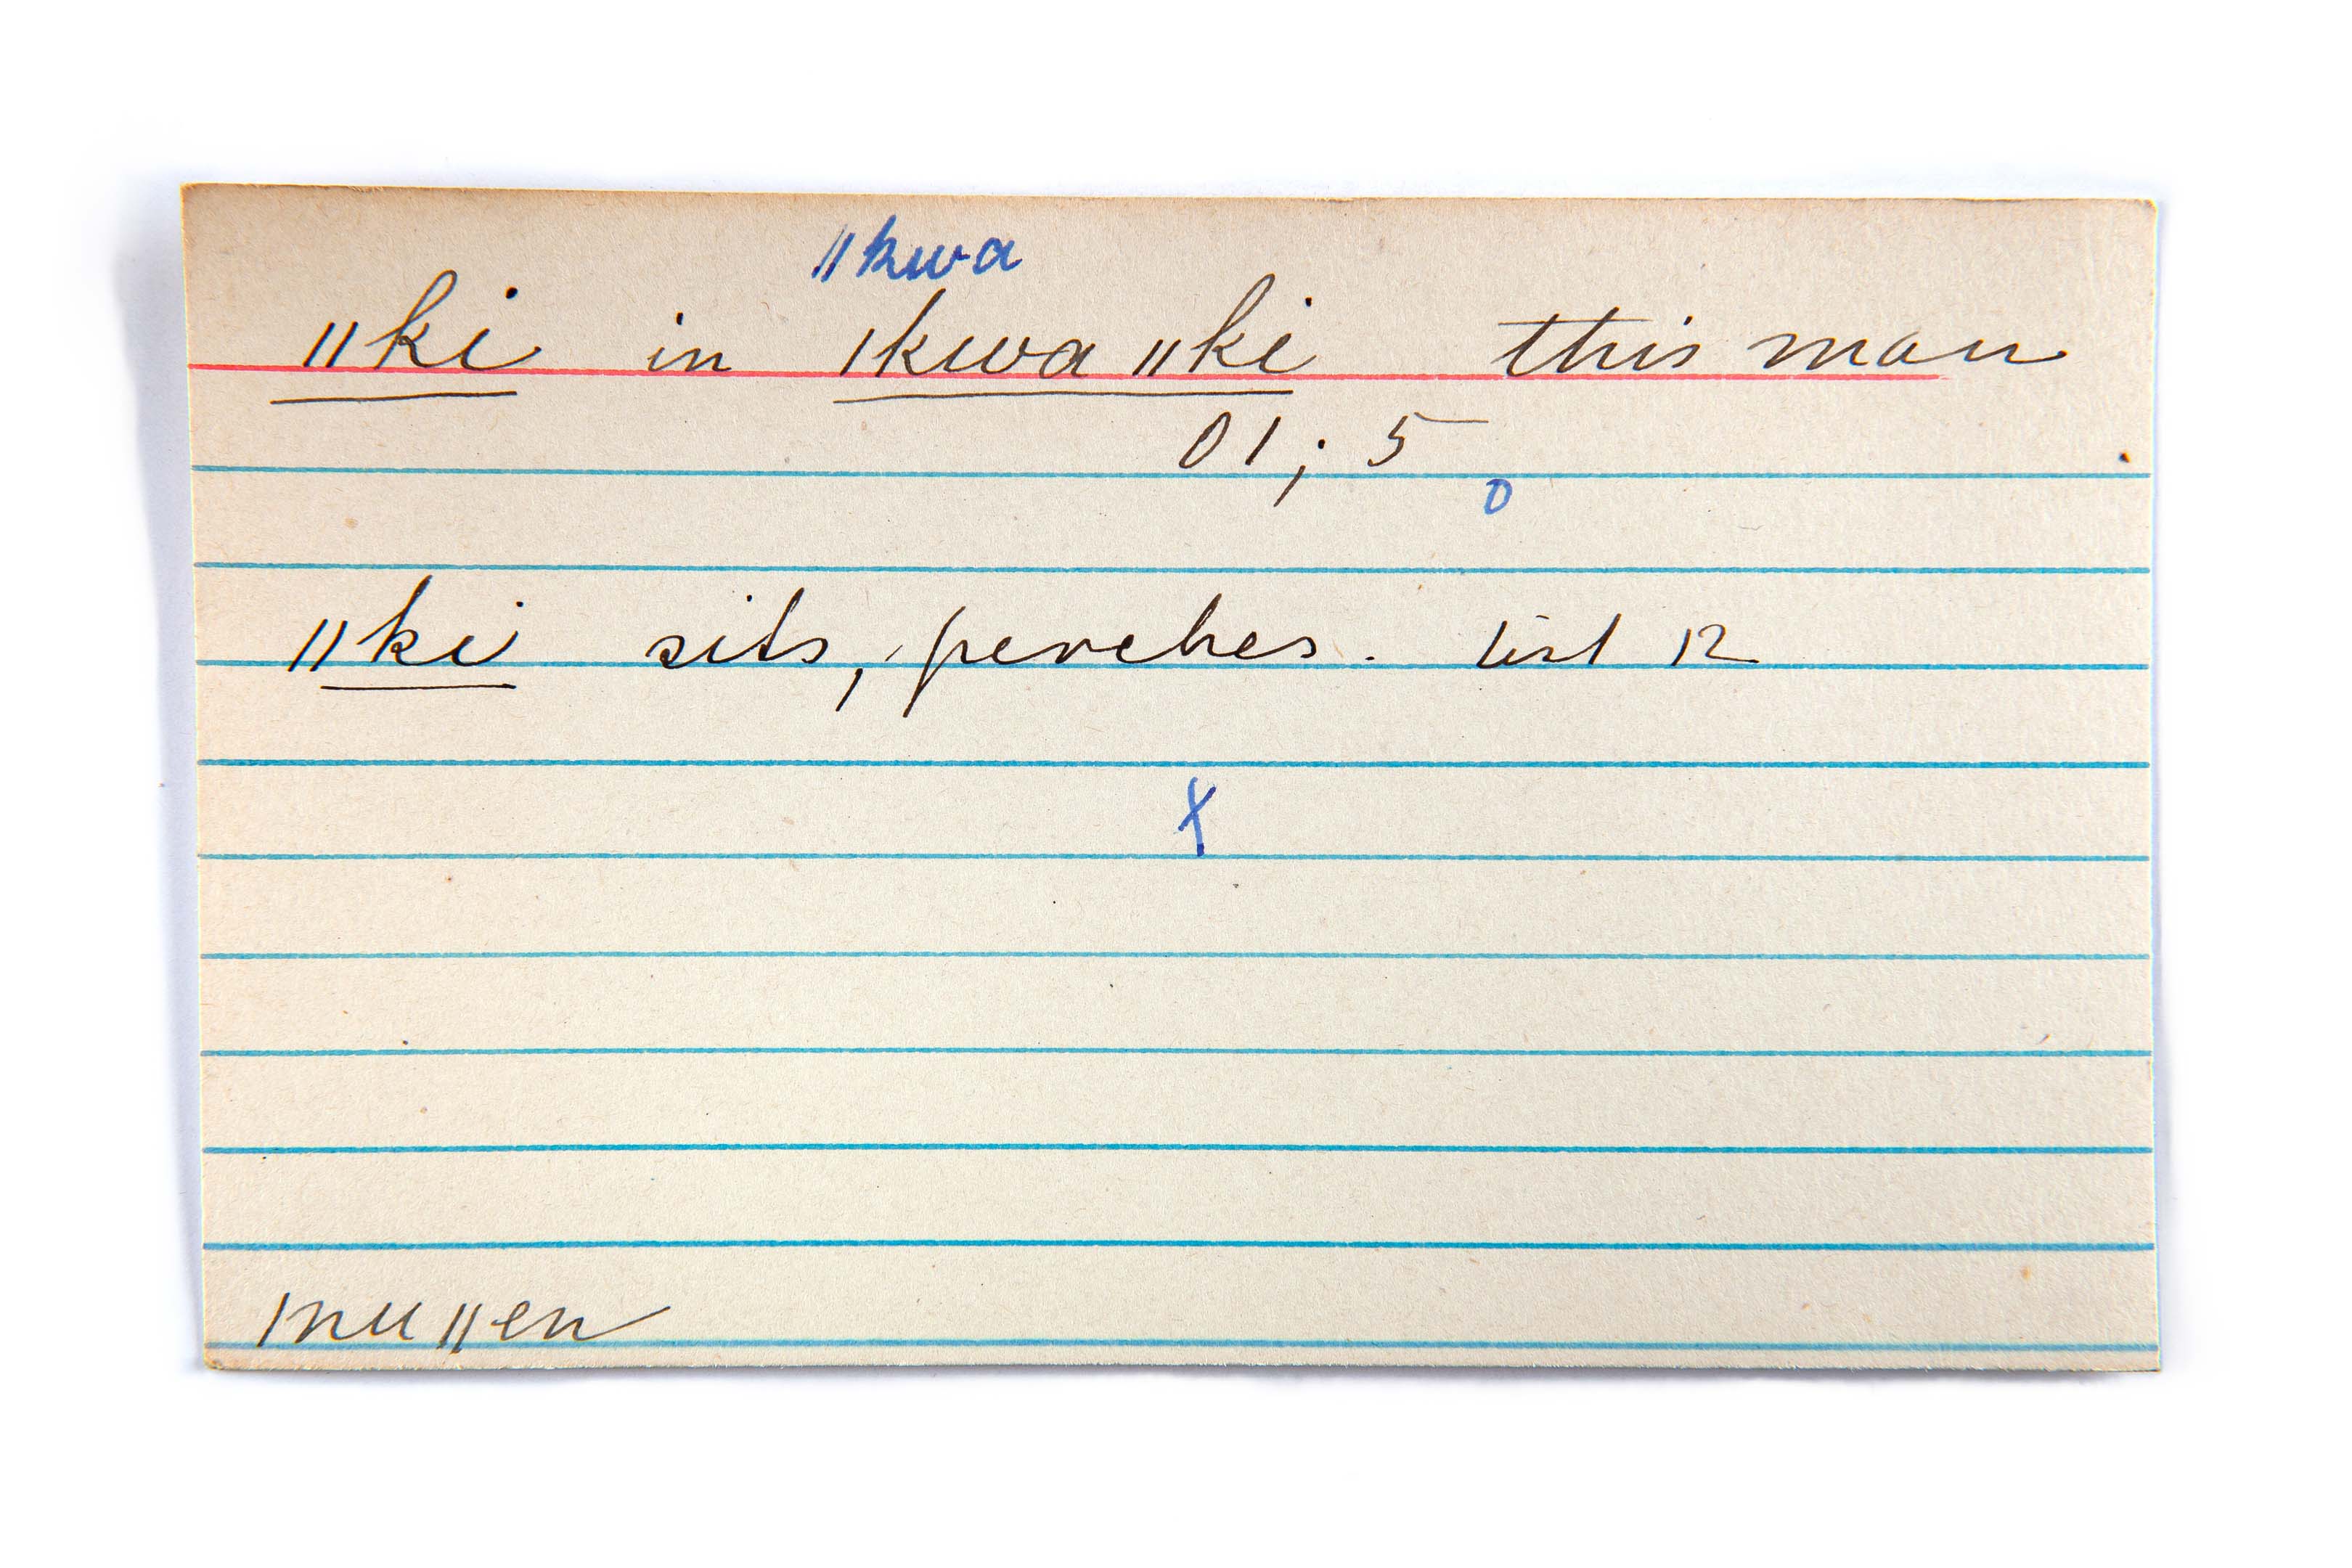 ǁkwa
ǁki in ǀkwa ǁki this man
01; 5
0
ǁki sits, perches. List 12
X
ǀnuǁen